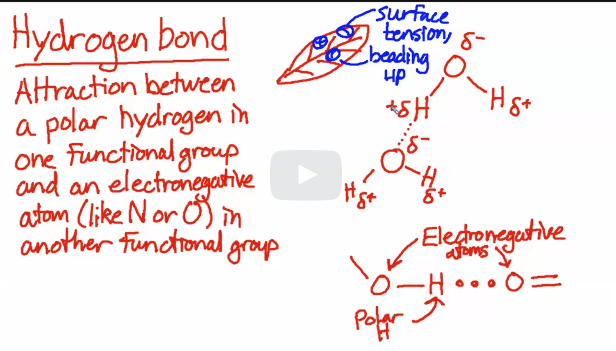 Hydrogen bond
Attraction between
a polar hydrogen in
one functional group
and an electronegative
atom (like N or O) in
another functional group
surface
tension,
beading
up
δ-
O
+δ H
H δ+
O δ-
H
δ+
H
δ+
Electronegative
atoms
O — H ••• O =
Polar
H